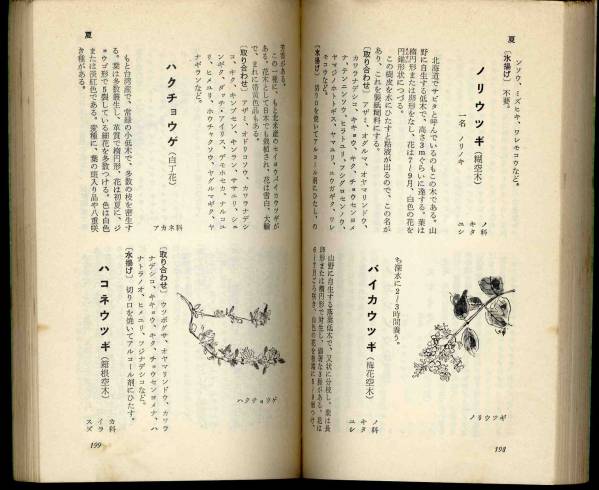 夏
ンソウ、ミズヒキ、ワレモコウなど。
〔水揚げ〕 不要。
ノリウツギ (糊空木)
一名 ノリノキ
ユキノシタ科
北海道でサビタといているのもこの木である。山
野に自生する低木で、高さ3mぐらいに達する。葉は
楕円形または卵形をなし、花は7~9月、白色の花を
円錐形状につづる。
この樹皮を水にひたすと粘液が出るので、この名が
あり、これを製紙糊料にする。
〔取り合わせ〕 アザミ、オグルマ、オヤマリンドウ、
カワラナデシコ、キキョウ、キク、チョウセンヨメ
ナ、テンニンソウ、ヒラトユリ、フシグロセンノウ、
ヤマジノホトトギス、ヤマユリ、ユウガギク、ワレ
モコウなど。
〔水揚げ〕 切り口を焼いてアルコール剤にひたし、の
ち深水に2~3時間養う。
ノリウツギ
バイカウツギ (梅花空木)
ユキノシタ科
山野に自生する落葉低木で、又状に分枝し、葉は長
卵形または楕円形で対生し、顕著な3脈がある。花は
6~7月ごろ咲き、白色の花を枝端に5~9個つけ、
198
夏
芳香がある。
この一種に、もと北米産のセイヨウバイカウツギが
ある。花木として日本でも栽培され、花は雪白、大輪
で、まれに帯黄色品もある。
〔取り合わせ〕 アザミ、オドリコソウ、カワラナデシ
コ、キク、キングサン、キンラン、ササユリ、シュ
ンギク、ダッチ・アイリス、デモホセカ、ナルコユ
リ、ヒメユリ、ホウチャクソウ、ヤグルマギク、ヤ
ナギランなど。
ハクチョウゲ (白丁花)
アカネ科
もと台湾産で、常緑の小低木で、多数の枝を密生す
る。葉は多数叢生し、革質で楕円形、花は初夏に、ジ
ョウゴ形で5裂している細花を多数つける。色は白色
または淡紅色である。変種に、葉の斑入り品や八重咲
き種がある。
ハクチョウゲ
〔取り合わせ〕 ウツボグサ、オヤマリンドウ、カワラ
ナデシコ、キキョウ、キク、チョウセンヨメナ、ハ
ナトラノオ、ヒメユリ、フジナデシコなど。
〔水揚げ〕 切り口を焼いてアルコール剤にひたす。
ハコネウツギ (箱根空木)
スイカズラ科
199